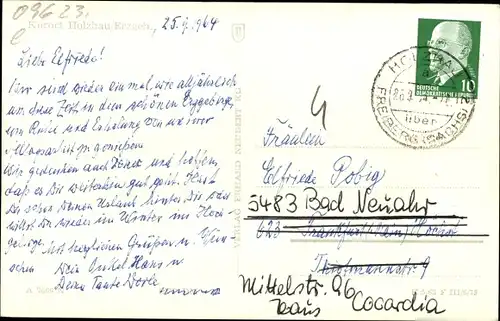 096 23.
Kurort Holzhau/Erzgeb.
25.9.1964
Liebe Elfriede!
Wir sind wieder einmal, wie alljährlich
um diese Zeit in dem schönen Erzgebirge,
um Ruhe und Erholung
zu genießen.
Wir gedenken auch Deiner und hoffen,
daß es Dir weiterhin gut geht. Hast
Du schon Deinen Urlaub hinter Dir oder
willst Du wieder im Winter ins Hoch-
gebirge. Mit herzlichen Grüßen u. Wün-
schen Dein Onkel Hans u.
Deine Tante Dorle
DEUTSCHE
DEMOKRATISCHE REPUBLIK
10
HOLZHAU
über
FREIBERG (SACHS)
4
Fräulein
Elfriede Pobig
5483 Bad Neuahr
623 Frankfurt (Main) Höchst
Thiotmannstr. 9
Mittelstr. 96
Haus Cocardia